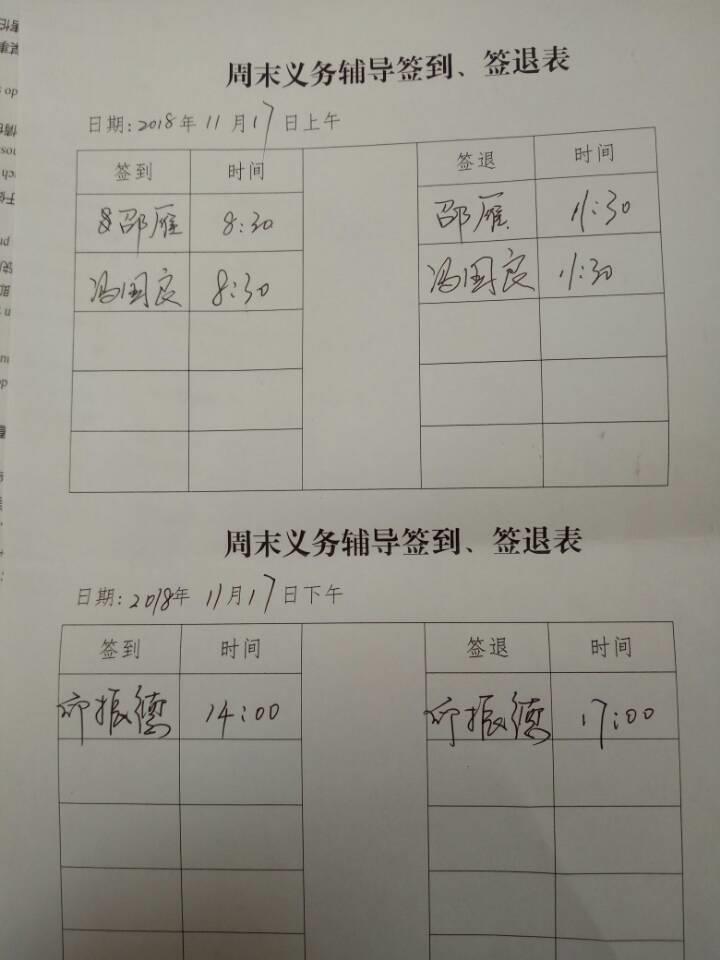 周末义务辅导签到、签退表
日期:2018年11月17日上午
签到 时间 签退 时间
邵雁 8:30 邵雁 11:30
冯国良 8:30 冯国良 11:30
周末义务辅导签到、签退表
日期:2018年11月17日下午
签到 时间 签退 时间
振德 14:00 振德 17:00